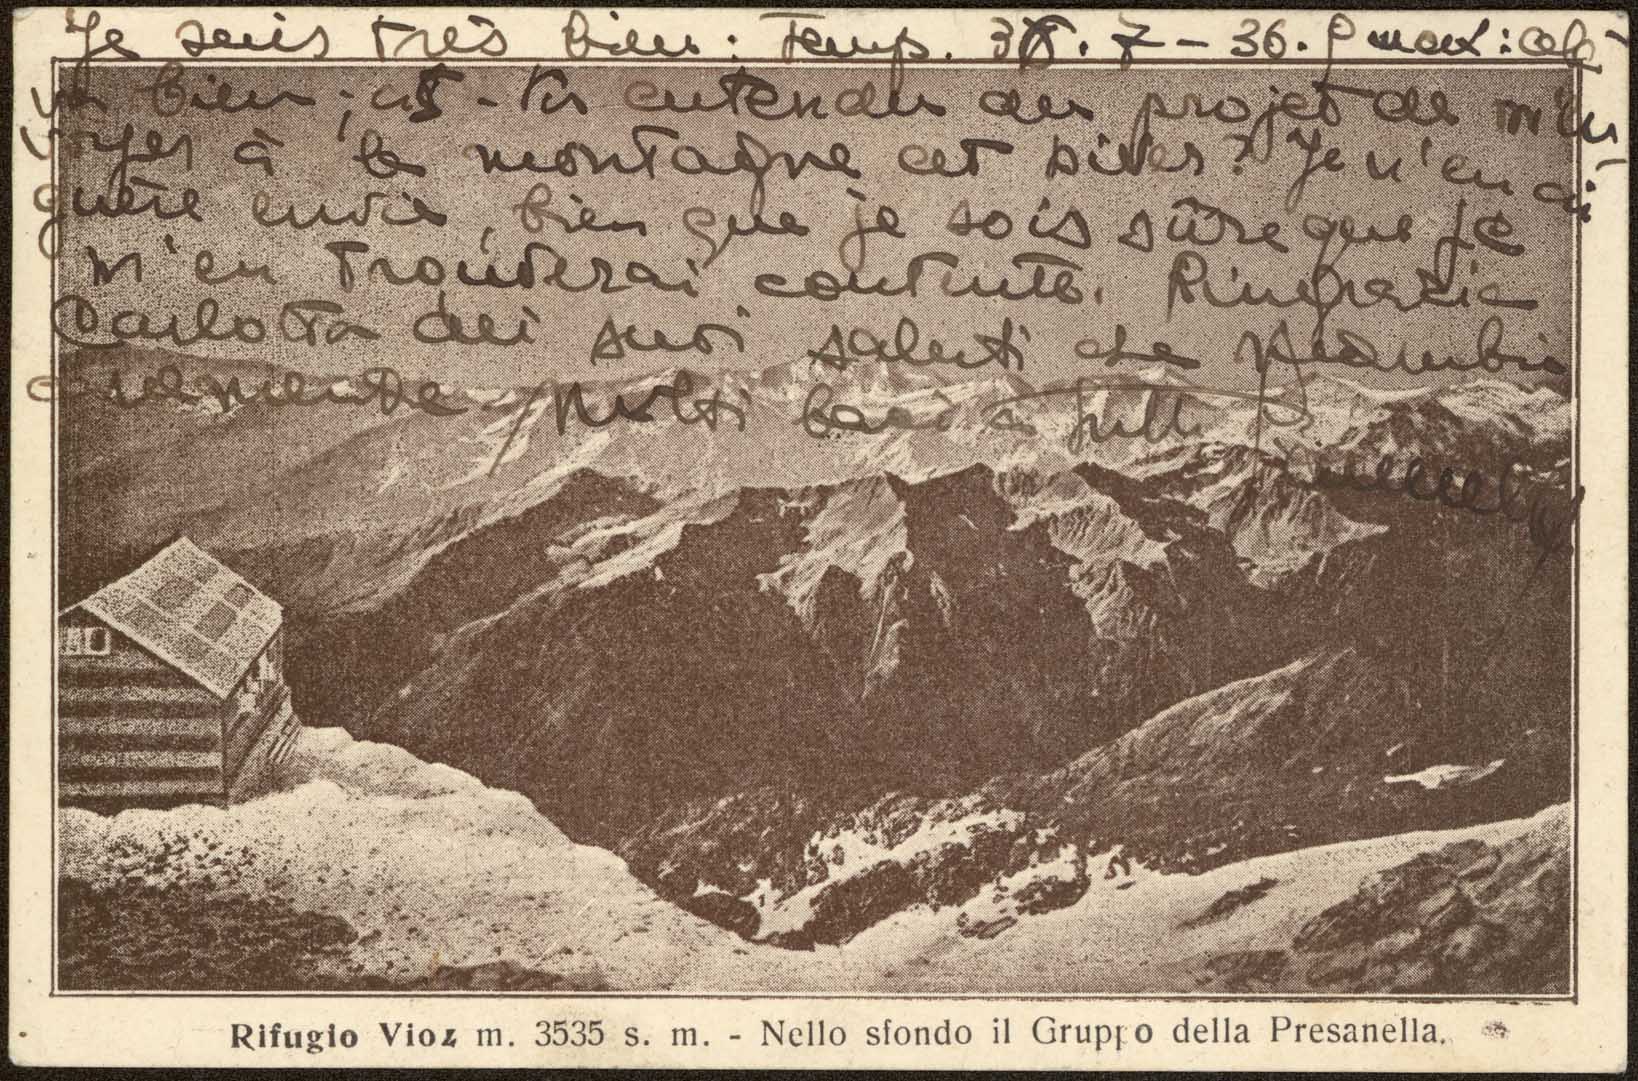 Je suis très bien: Temp. 36.7-36.9 max: cela
va bien; as-tu entendu du projet de m'en
voyer à la montagne cet hiver? Je n'en ai
guère envie, bien que je sois sûre que je
m'en trouverai contente. Ringrazia
Carlotta dei suoi saluti che ricambio
Molti baci a tutti
Rifugio Vioz m. 3535 s. m. - Nello sfondo il Gruppo della Presanella.